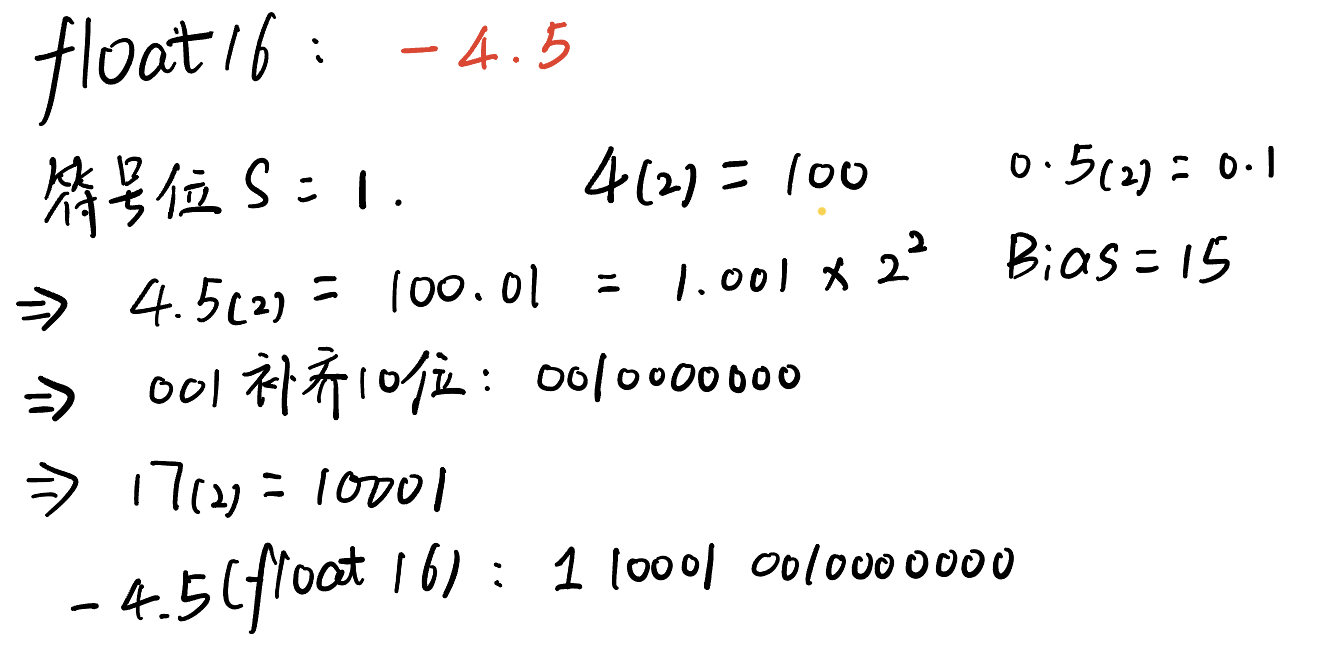 float16： -4.5
符号位 S = 1. 4(2) = 100 0.5(2) = 0.1
⇒ 4.5(2) = 100.01 = 1.001 × 2² Bias = 15
⇒ 001 补齐10位： 0010000000
⇒ 17(2) = 10001
-4.5(float 16)： 1 10001 0010000000